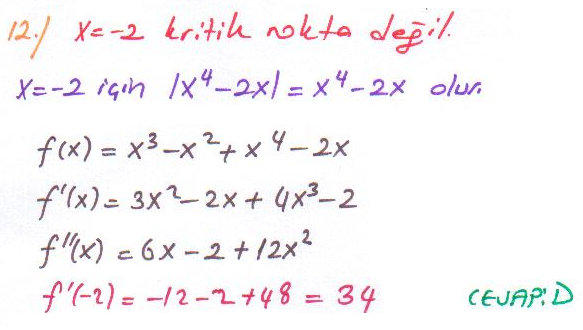 12.) X=-2 kritik nokta değil.
X=-2 için |x⁴-2x| = x⁴-2x olur.
f(x) = x³-x²+x⁴-2x
f'(x) = 3x²-2x+4x³-2
f''(x) = 6x-2+12x²
f'(-2) = -12-2+48 = 34
CEVAP: D